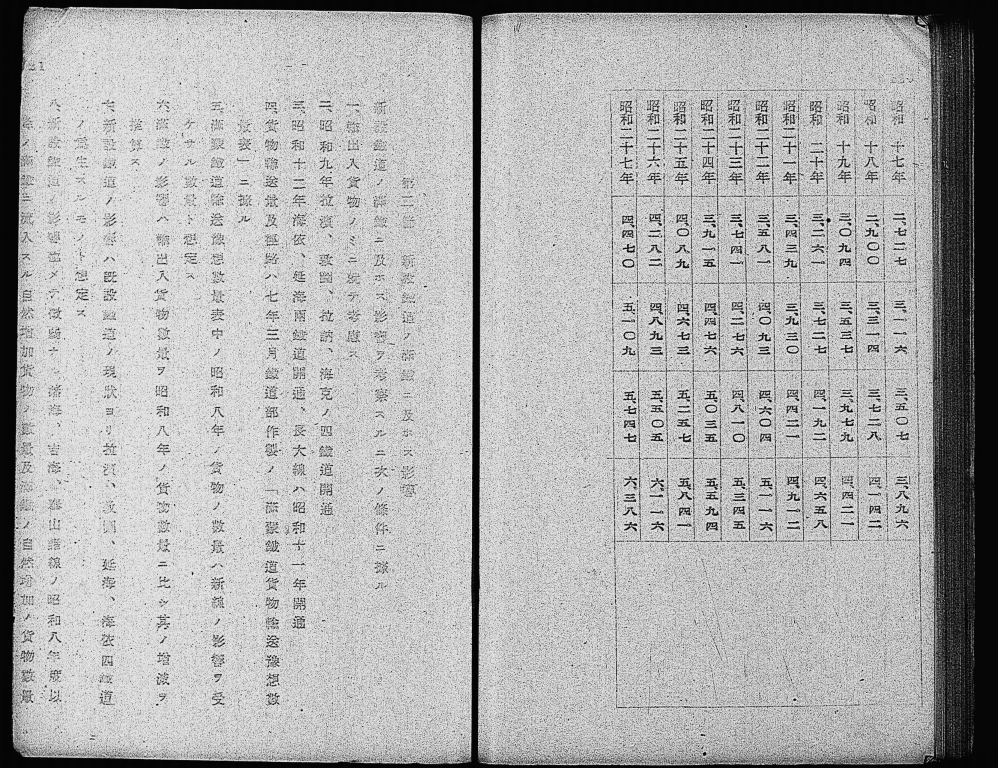 昭和 十七年 二、七二七 三、一一六 三、五〇七 三、八九六
昭和 十八年 二、九〇〇 三、三一四 三、七二八 四、一四二
昭和 十九年 三、〇九四 三、五三七 三、九七九 四、四二一
昭和 二十年 三、二六一 三、七二七 四、一九二 四、六五八
昭和二十一年 三、四三九 三、九三〇 四、四二一 四、九一二
昭和二十二年 三、五八一 四、〇九三 四、六〇四 五、一一六
昭和二十三年 三、七四一 四、二七六 四、八一〇 五、三四五
昭和二十四年 三、九一五 四、四七六 五、〇三五 五、五九四
昭和二十五年 四、〇八九 四、六七三 五、二五七 五、八四一
昭和二十六年 四、二八二 四、八九三 五、五〇五 六、一一六
昭和二十七年 四、四七〇 五、一〇九 五、七四七 六、三八六
新設鐵道ノ滿鐵ニ及ホス影響
新設鐵道ノ滿鐵ニ及ホス影響ヲ考察スルニ次ノ條件ニ據ル
一、輸出入貨物ノミニ就テ考慮ス
二、昭和九年拉濱、敦圖、拉訥、海克ノ四鐵道開通
三、昭和十二年海依、延海兩鐵道開通、長大線ハ昭和十一年開通
四、貨物輸送量及徑路ハ七年三月鐵道部作製ノ「滿蒙鐵道貨物輸送豫想數
量表」ニ據ル
五、滿蒙鐵道輸送豫想數量表中ノ昭和八年ノ貨物ノ數量ハ新線ノ影響ヲ受
ケサル數量ト想定ス
六、滿鐵ノ影響ハ輸出入貨物數量ヲ昭和八年ノ貨物數量ニ比シ其ノ增減ヲ
推算ス
七、新設鐵道ノ影響ハ既設鐵道ノ現狀ヨリ拉濱、敦圖、延海、海依四鐵道
ノ生スルモノト想定ス
八、新設鐵道ノ影響極メテ微弱ナル瀋海、吉海、泰山諸線ノ昭和八年度以
降ノ滿鐵ニ流入スル自然增加貨物ノ數量及滿鐵ノ自然增加ノ貨物數量